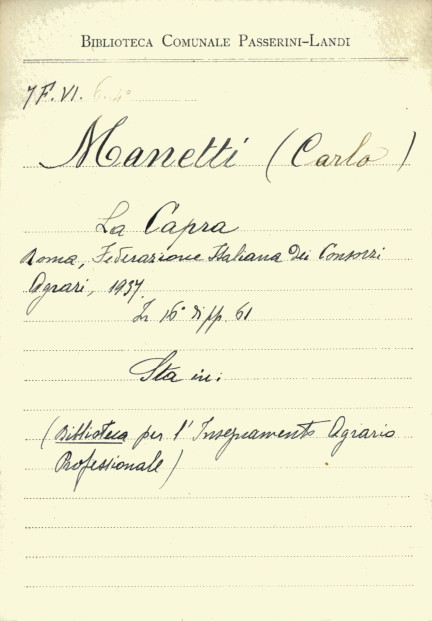 BIBLIOTECA COMUNALE PASSERINI-LANDI
7 F. VI. 6.4°
Manetti (Carlo)
La Capra
Roma, Federazione Italiana dei Consorzi
Agrari, 1937
In 16° di pp. 61
Sta in:
(Biblioteca per l'Insegnamento Agrario
Professionale)